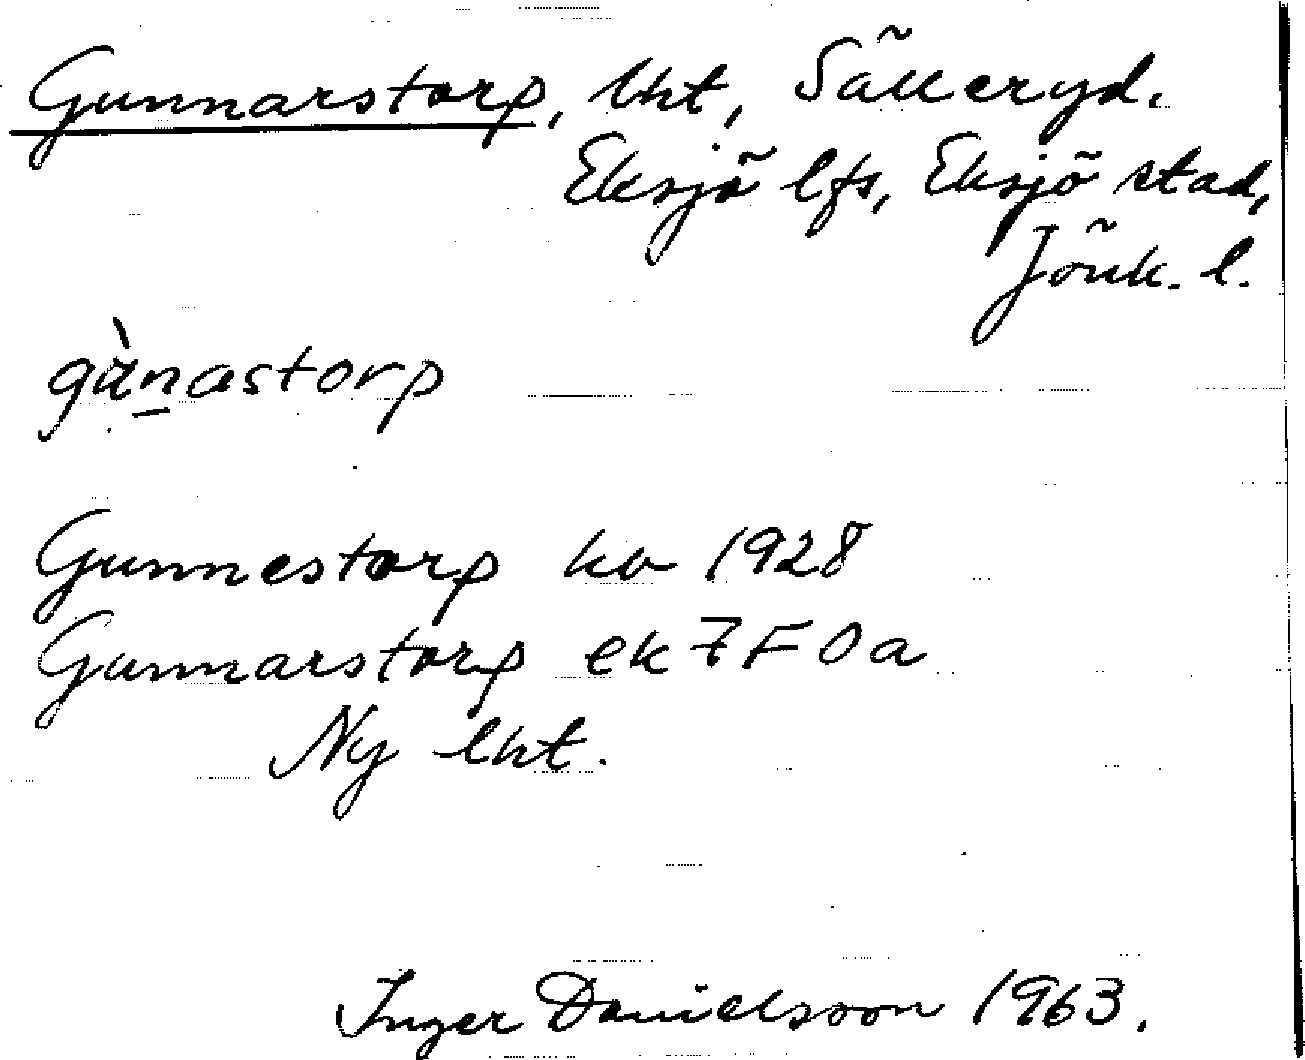 Gunnarstorp, lht, Sälleryd.
Eksjö lfs, Eksjö stad,
Jönk. l.
gànastorp
Gunnestorp ko 1928
Gunnarstorp ek 7F0a
Ny lht.
Inger Danielsson 1963.